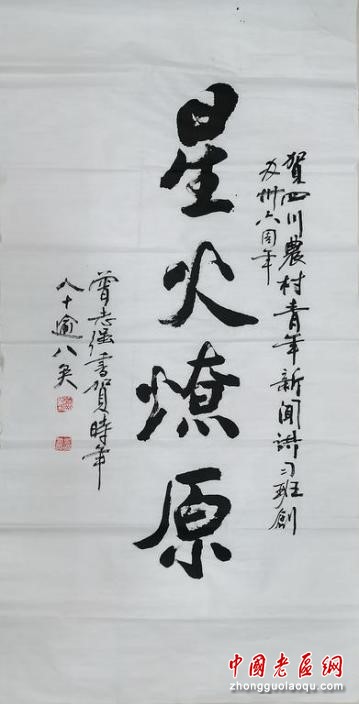 賀四川農村青年新闻讲习班創
办卅六周年
星火燎原
曾志强書賀時年
八十逾八矣
中國老區網
zhongguolaoqu.com